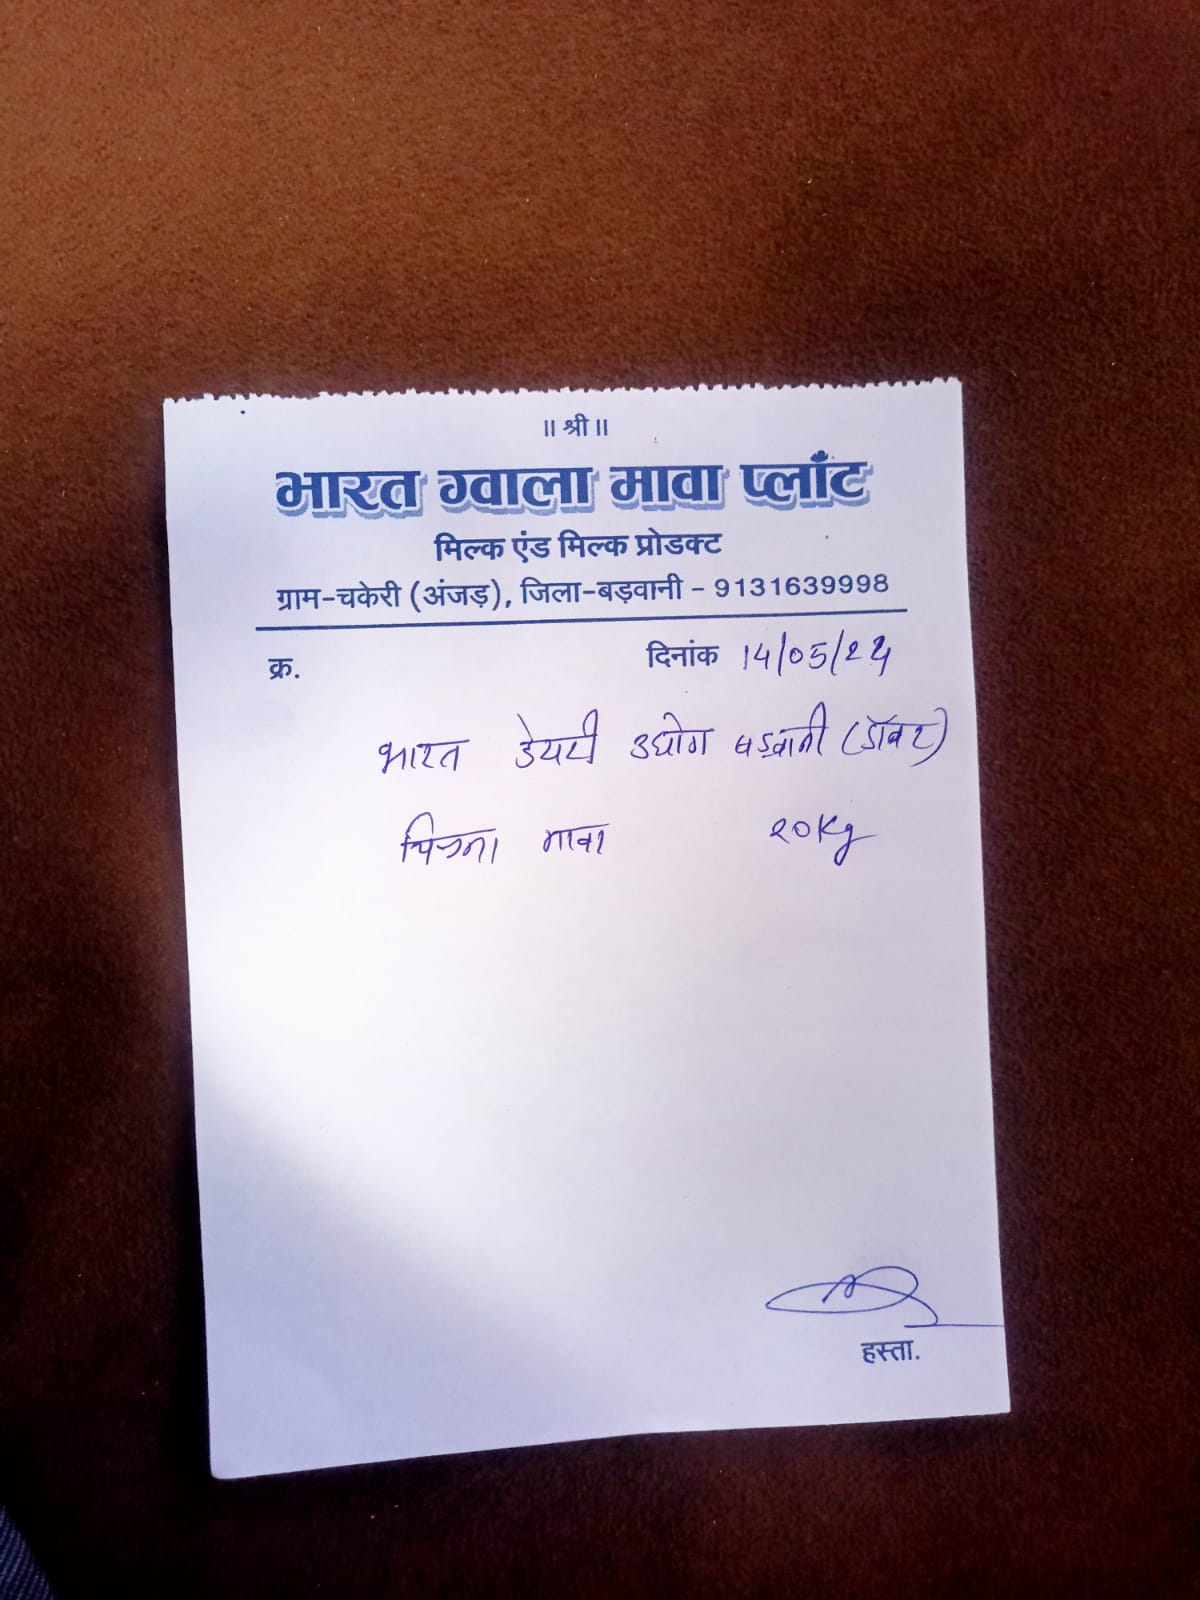 ॥ श्री ॥
भारत ग्वाला मावा प्लाँट
मिल्क एंड मिल्क प्रोडक्ट
ग्राम-चकेरी (अंजड़), जिला-बड़वानी - 9131639998
क्र. दिनांक 14/05/24
भारत डेयरी उद्योग बड़वानी
चिकना मावा 20Kg
हस्ता.